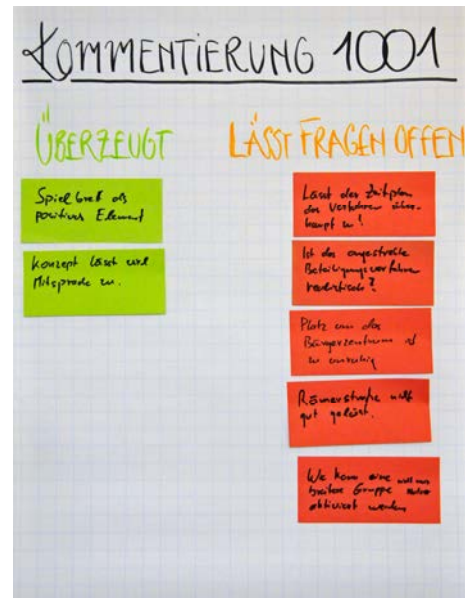 KOMMENTIERUNG 1001
ÜBERZEUGT
Spielbrett als
positives Element
Konzept lässt viel
Mitsprache zu.
LÄSST FRAGEN OFFEN
Lässt der Zeitplan
das Verfahren über-
haupt zu!
Ist das angestrebte
Beteiligungsverfahren
realistisch?
Platz um das
Bürgerzentrum ist
zu unruhig
Römerstraße nicht
gut gelöst.
Wie kann eine
breitere Gruppe
aktiviert werden